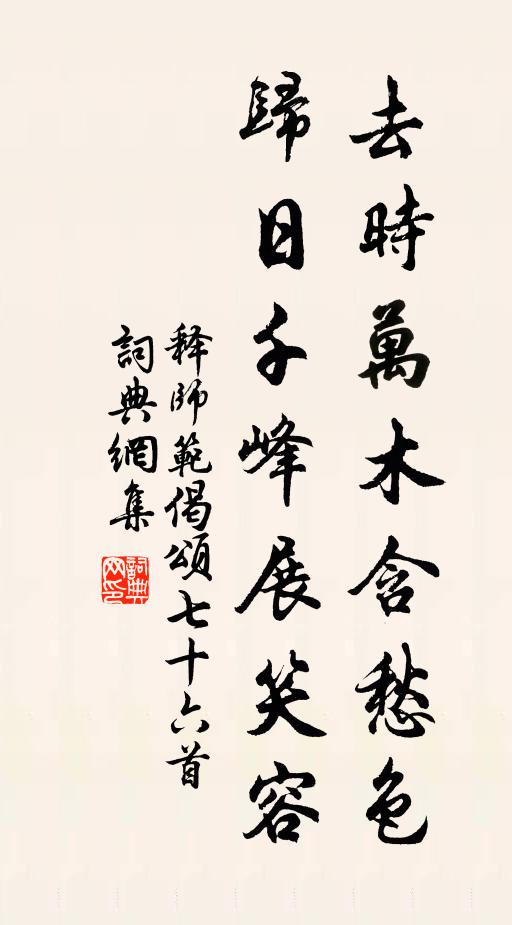 去時萬木含愁色
歸日千峰展笑容
释師範偈頌七十六首
詞典網集
詞典网印